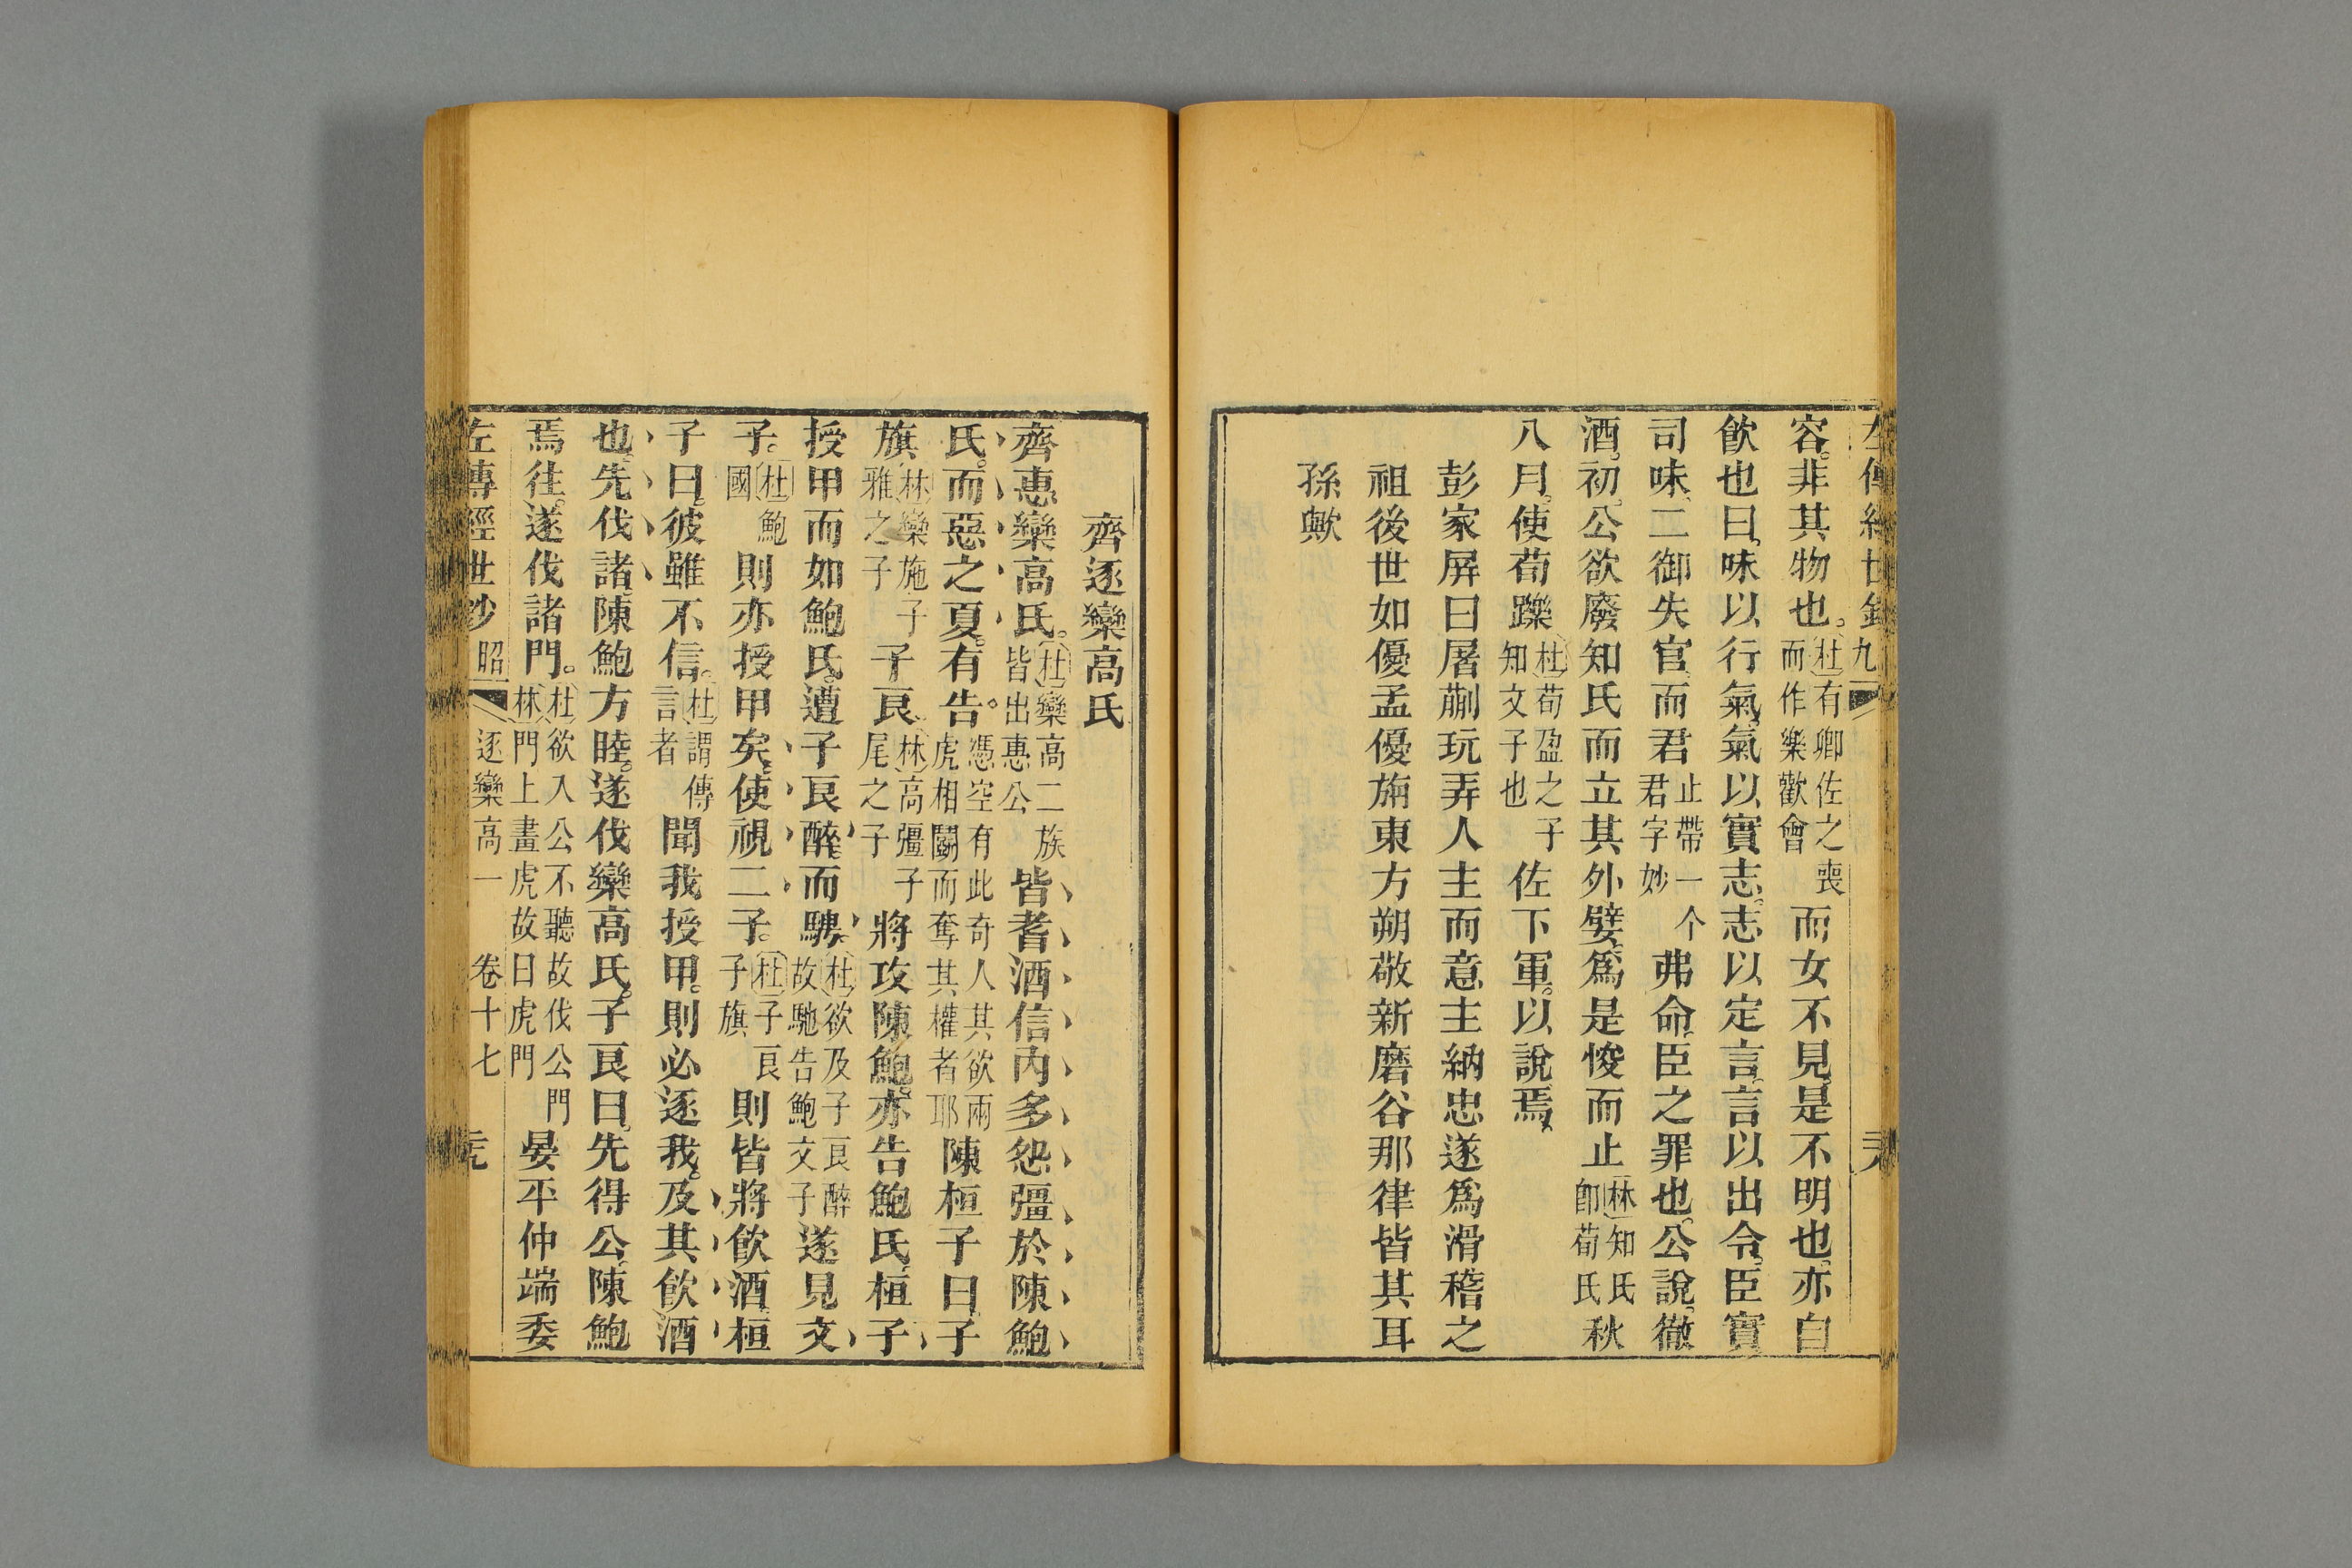 容。非其物也。杜有卿佐之喪而作樂歡會而女不見。是不明也。亦自
飲也。曰。味以行氣。氣以實志。志以定言。言以出令。臣實
司味。二御失官。而君止帶一个君字妙弗命。臣之罪也。公說。徹
酒。初。公欲廢知氏而立其外嬖。爲是悛而止林知氏卽荀氏秋
八月。使荀躒杜荀盈之子知文子也佐下軍。以說焉。
彭家屏曰屠蒯玩弄人主而意主納忠遂爲滑稽之
祖後世如優孟優旃東方朔敬新磨谷那律皆其耳
孫歟
齊逐欒高氏
齊惠欒高氏。杜欒高二族皆出惠公皆耆酒信內多怨彊於陳鮑
氏。而惡之夏。有告。憑空有此奇人其欲兩虎相鬬而奪其權者耶陳桓子曰。子
旗林欒施子雅之子子良林高彊子尾之子將攻陳鮑。亦告鮑氏。桓子
授甲而如鮑氏。遭子良醉而騁。杜欲及子良醉故馳告鮑文子遂見文
子。杜鮑國則亦授甲矣。使視二子。杜子良子旗則皆將飲酒。桓
子曰。彼雖不信。杜謂傳言者聞我授甲。則必逐我。及其飲酒
也。先伐諸。陳鮑方睦。遂伐欒高氏。子良曰。先得公。陳鮑
焉往。遂伐諸門。杜欲入公不聽故伐公門林門上畫虎故曰虎門晏平仲端委
左傳經世鈔 昭 逐欒高一 卷十七